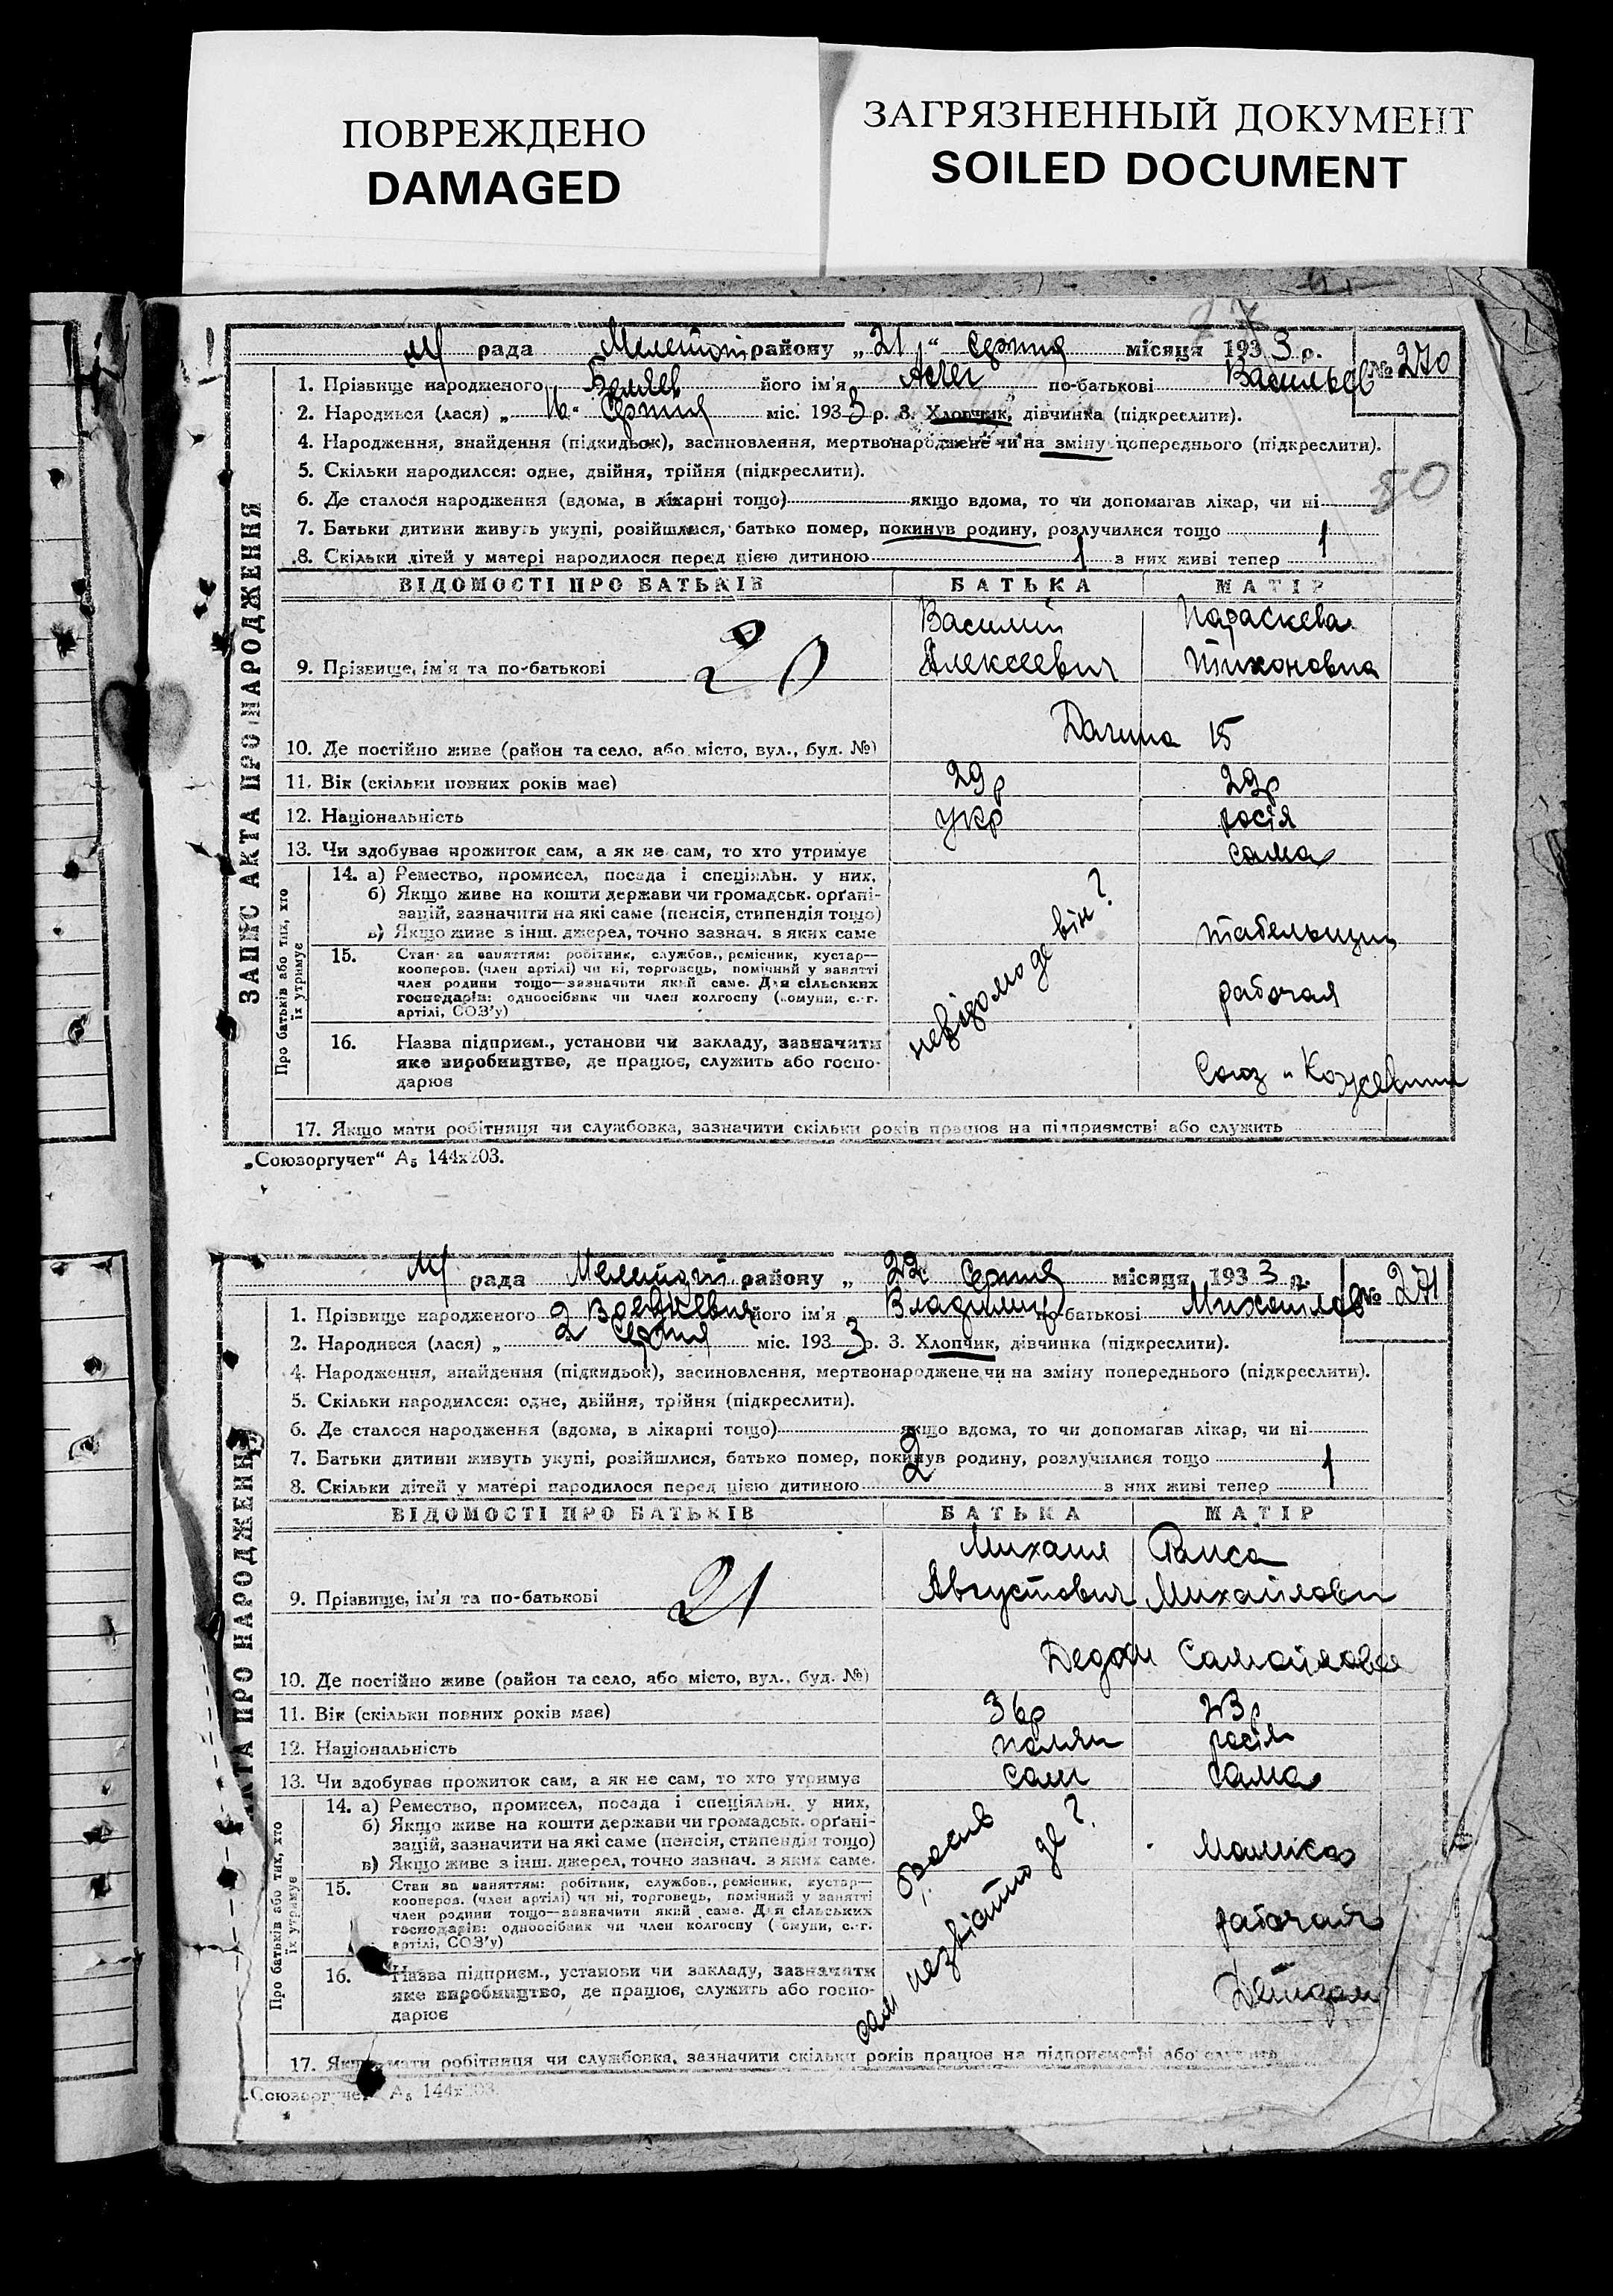 ПОВРЕЖДЕНО
DAMAGED
ЗАГРЯЗНЕННЫЙ ДОКУМЕНТ
SOILED DOCUMENT
М/ рада Мелитоп району „21“ Серпня місяця 1933 р. № 270
1. Прізвище народженого Беляев його ім'я по-батькові Васильев
2. Народився (лася) „ Серпня міс. 1933 р. 3. Хлопчик, дівчинка (підкреслити).
4. Народження, знайдення (підкидьок), засиновлення, мертвонароджене чи на зміну попереднього (підкреслити).
50
5. Скільки народилося: одне, двійня, трійня (підкреслити).
6. Де сталося народження (вдома, в лікарні тощо) якщо вдома, то чи допомагав лікар, чи ні
7. Батьки дитини живуть укупі, розійшлися, батько помер, покинув родину, розлучилися тощо
8. Скільки дітей у матері народилося перед цією дитиною 1 з них живі тепер 1
ЗАПИС АКТА ПРО НАРОДЖЕННЯ
ВІДОМОСТІ ПРО БАТЬКІВ БАТЬКА МАТІР
Василий Параскева
9. Прізвище, ім'я та по-батькові 20 Алексеевич Тихоновна
10. Де постійно живе (район та село, або місто, вул., буд. №) 15
11. Вік (скільки повних років має) 29р 29р
12. Національність укр росія
13. Чи здобуває прожиток сам, а як не сам, то хто утримує сама
Про батьків або тих, хто їх утримує
14. а) Ремество, промисел, посада і спеціяльн. у них,
б) Якщо живе на кошти держави чи громадськ. орґані-
зацій, зазначити на які саме (пенсія, стипендія тощо)
в) Якщо живе з інш. джерел, точно зазнач. з яких саме
невідомо де він?
табельщиц
15. Стан за заняттям: робітник, службов., ремісник, кустар—
кооперов. (член артілі) чи ні, торговець, помічний у занятті
член родини тощо—зазначити який саме. Для сільських
господарів: одноосібник чи член колгоспу (комуни, с.-г.
артілі, СОЗ'у)
рабочая
16. Назва підприєм., установи чи закладу, зазначити
яке виробництво, де працює, служить або госпо-
дарює
Союз
17. Якщо мати робітниця чи службовка, зазначити скільки років працює на підприємстві або служить
„Союзоргучет“ А5 144х203.
М/ рада Мелитоп району „ 22 Серпня місяця 1933 р. № 271
1. Прізвище народженого його ім'я Владимир по-батькові Михайлов
2. Народився (лася) „ 2 Серпня міс. 1933 р. 3. Хлопчик, дівчинка (підкреслити).
4. Народження, знайдення (підкидьок), засиновлення, мертвонароджене чи на зміну попереднього (підкреслити).
5. Скільки народилося: одне, двійня, трійня (підкреслити).
6. Де сталося народження (вдома, в лікарні тощо) якщо вдома, то чи допомагав лікар, чи ні
7. Батьки дитини живуть укупі, розійшлися, батько помер, покинув родину, розлучилися тощо
8. Скільки дітей у матері народилося перед цією дитиною 2 з них живі тепер 1
АКТА ПРО НАРОДЖЕННЯ
ВІДОМОСТІ ПРО БАТЬКІВ БАТЬКА МАТІР
Михаил Раиса
9. Прізвище, ім'я та по-батькові 21 Августович Михайловн
10. Де постійно живе (район та село, або місто, вул., буд. №) Самойлова
11. Вік (скільки повних років має) 36р 23р
12. Національність поляк росія
13. Чи здобуває прожиток сам, а як не сам, то хто утримує сам сама
Про батьків або тих, хто їх утримує
14. а) Ремество, промисел, посада і спеціяльн. у них,
б) Якщо живе на кошти держави чи громадськ. орґані-
зацій, зазначити на які саме (пенсія, стипендія тощо)
в) Якщо живе з інш. джерел, точно зазнач. з яких саме.
бросив
сам незвістно де?
15. Стан за заняттям: робітник, службов., ремісник, кустар—
кооперов. (член артілі) чи ні, торговець, помічний у занятті
член родини тощо—зазначити який саме. Для сільських
господарів: одноосібник чи член колгоспу (комуни, с.-г.
артілі, СОЗ'у)
рабочая
16. Назва підприєм., установи чи закладу, зазначити
яке виробництво, де працює, служить або госпо-
дарює
Детдом
17. Якщо мати робітниця чи службовка, зазначити скільки років працює на підприємстві або служить
„Союзоргучет“ А5 144х203.